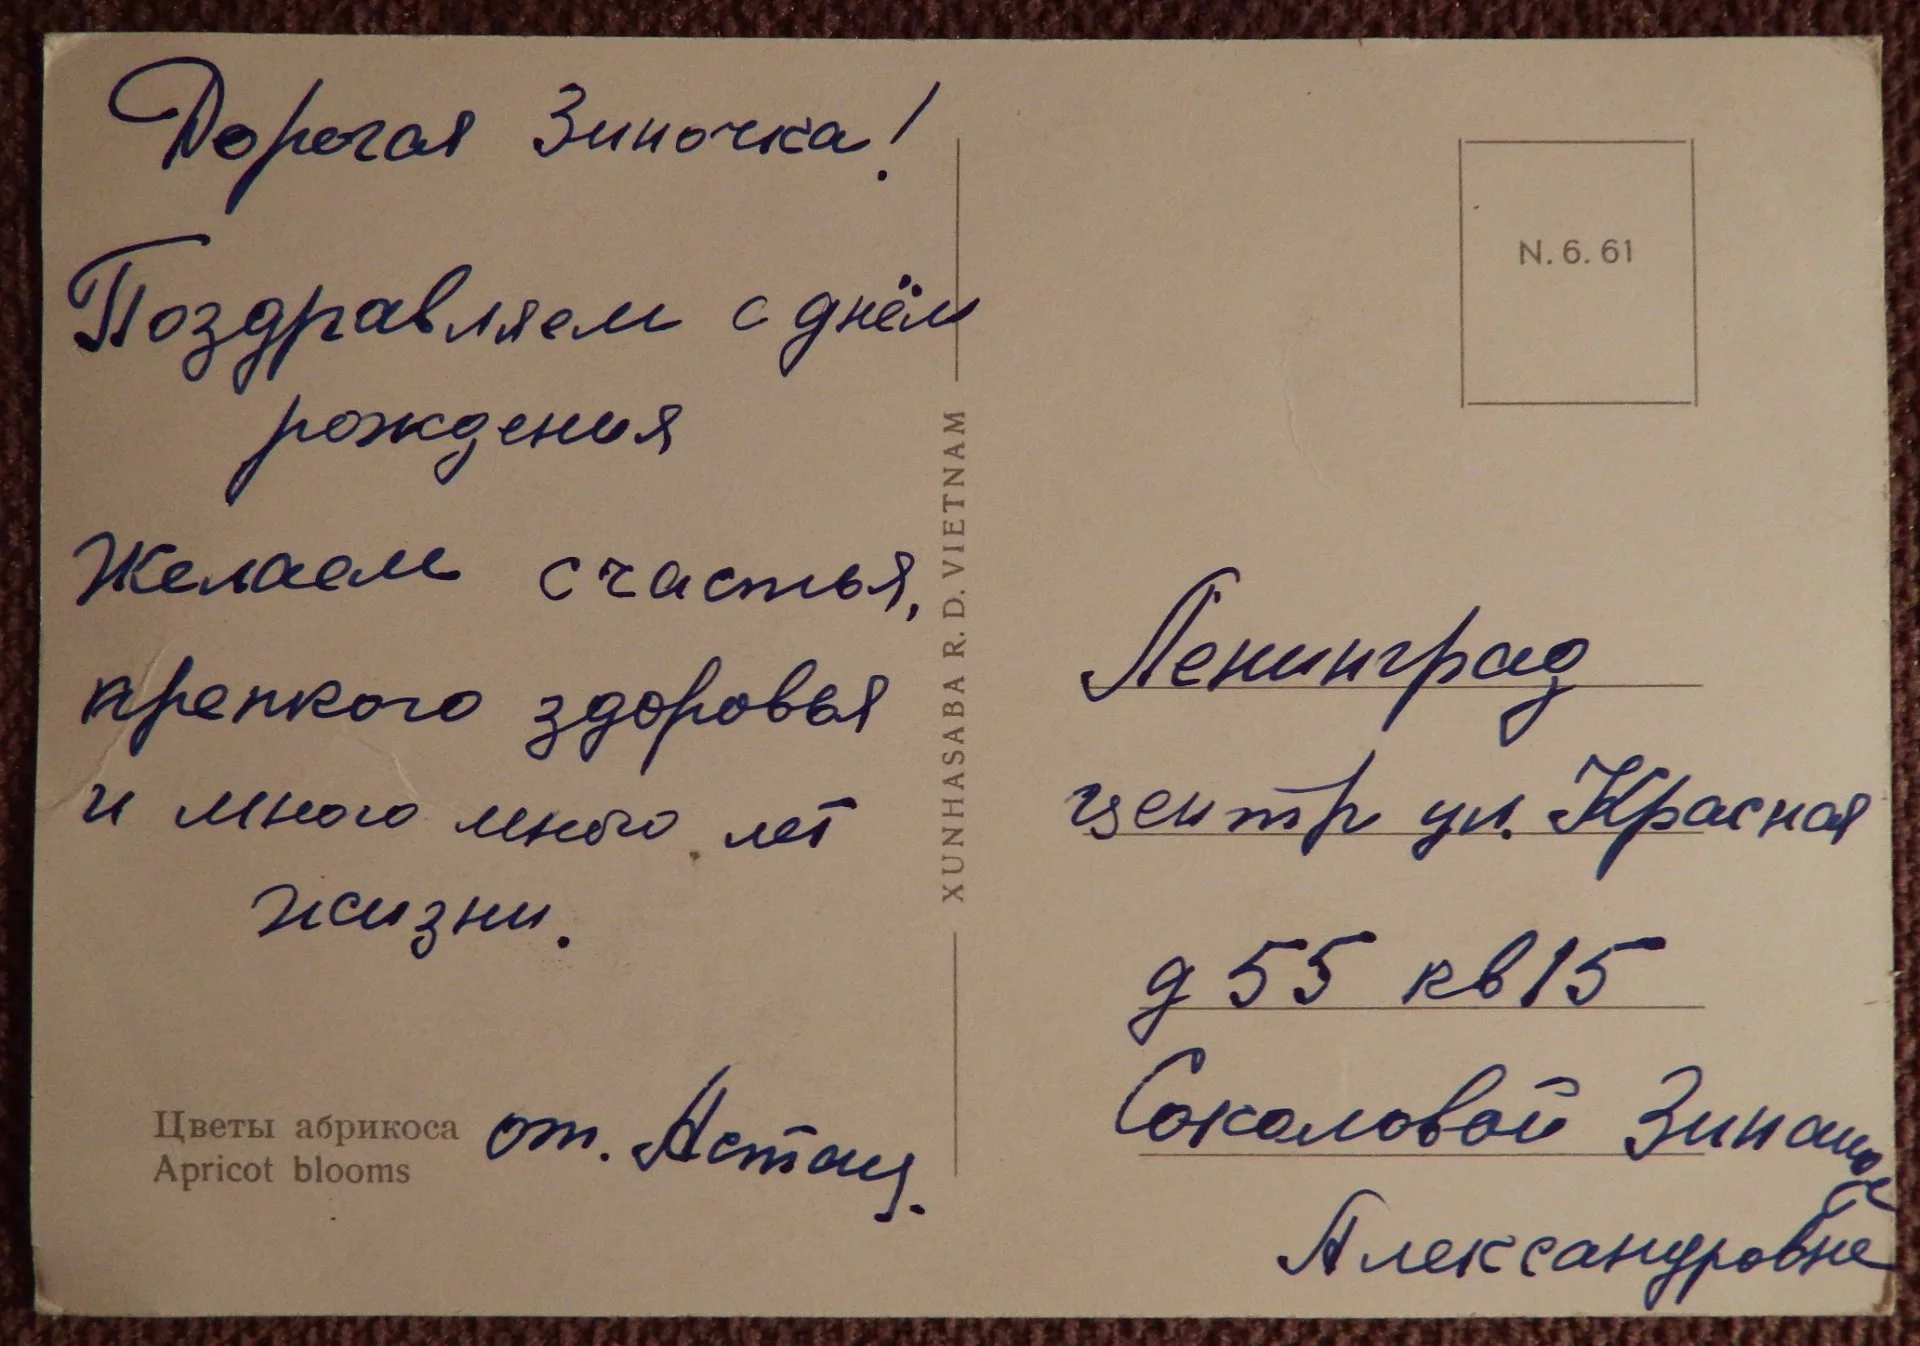 Дорогая Зиночка!
Поздравляем с днём
рождения
Желаем счастья,
крепкого здоровья
и много много лет
жизни.
от.
Цветы абрикоса
Apricot blooms
XUNHASABA R. D. VIETNAM
N. 6. 61
Ленинград
центр ул. Красная
д 55 кв 15
Соколовой Зинаиде
Александровне